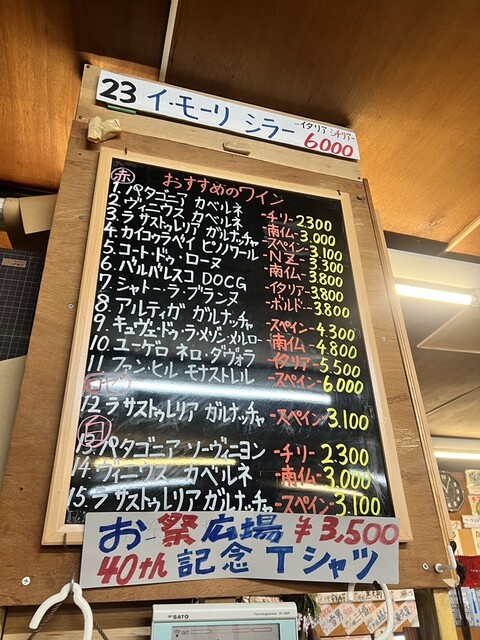 23 イ・モーリ シラー -イタリア シチリア- 6000
赤 おすすめのワイン
1. パタゴニア カベルネ -チリー 2300
2. ヴィニウス カベルネ -南仏- 3.000
3. ラ サストゥレリア ガルナッチャ -スペイン- 3.100
4. カイコウラベイ ピノノワール -NZ- 3.300
5. コート・ドゥ・ローヌ -南仏- 3.800
6. バルバレスコ DOCG -イタリア- 3.800
7. シャトー・ラ・ブランヌ -ボルドー- 3.800
8. アルティガ ガルナッチャ -スペイン- 4.300
9. キュヴェ・ドゥ・ラ・メゾン・メルロー -南仏- 4.800
10. ユーゲロ ネロ・ダヴォラ -イタリア- 5.500
11. ファン・ヒル モナストレル -スペイン- 6.000
ロゼ
12. ラ サストゥレリア ガルナッチャ -スペイン- 3.100
白
13. パタゴニア ソーヴィニヨン -チリー 2.300
14. ヴィニウス カベルネ -南仏- 3.000
15. ラ サストゥレリア ガルナッチャ -スペイン- 3.100
お祭広場 ¥3,500
40th 記念 Tシャツ
SATO